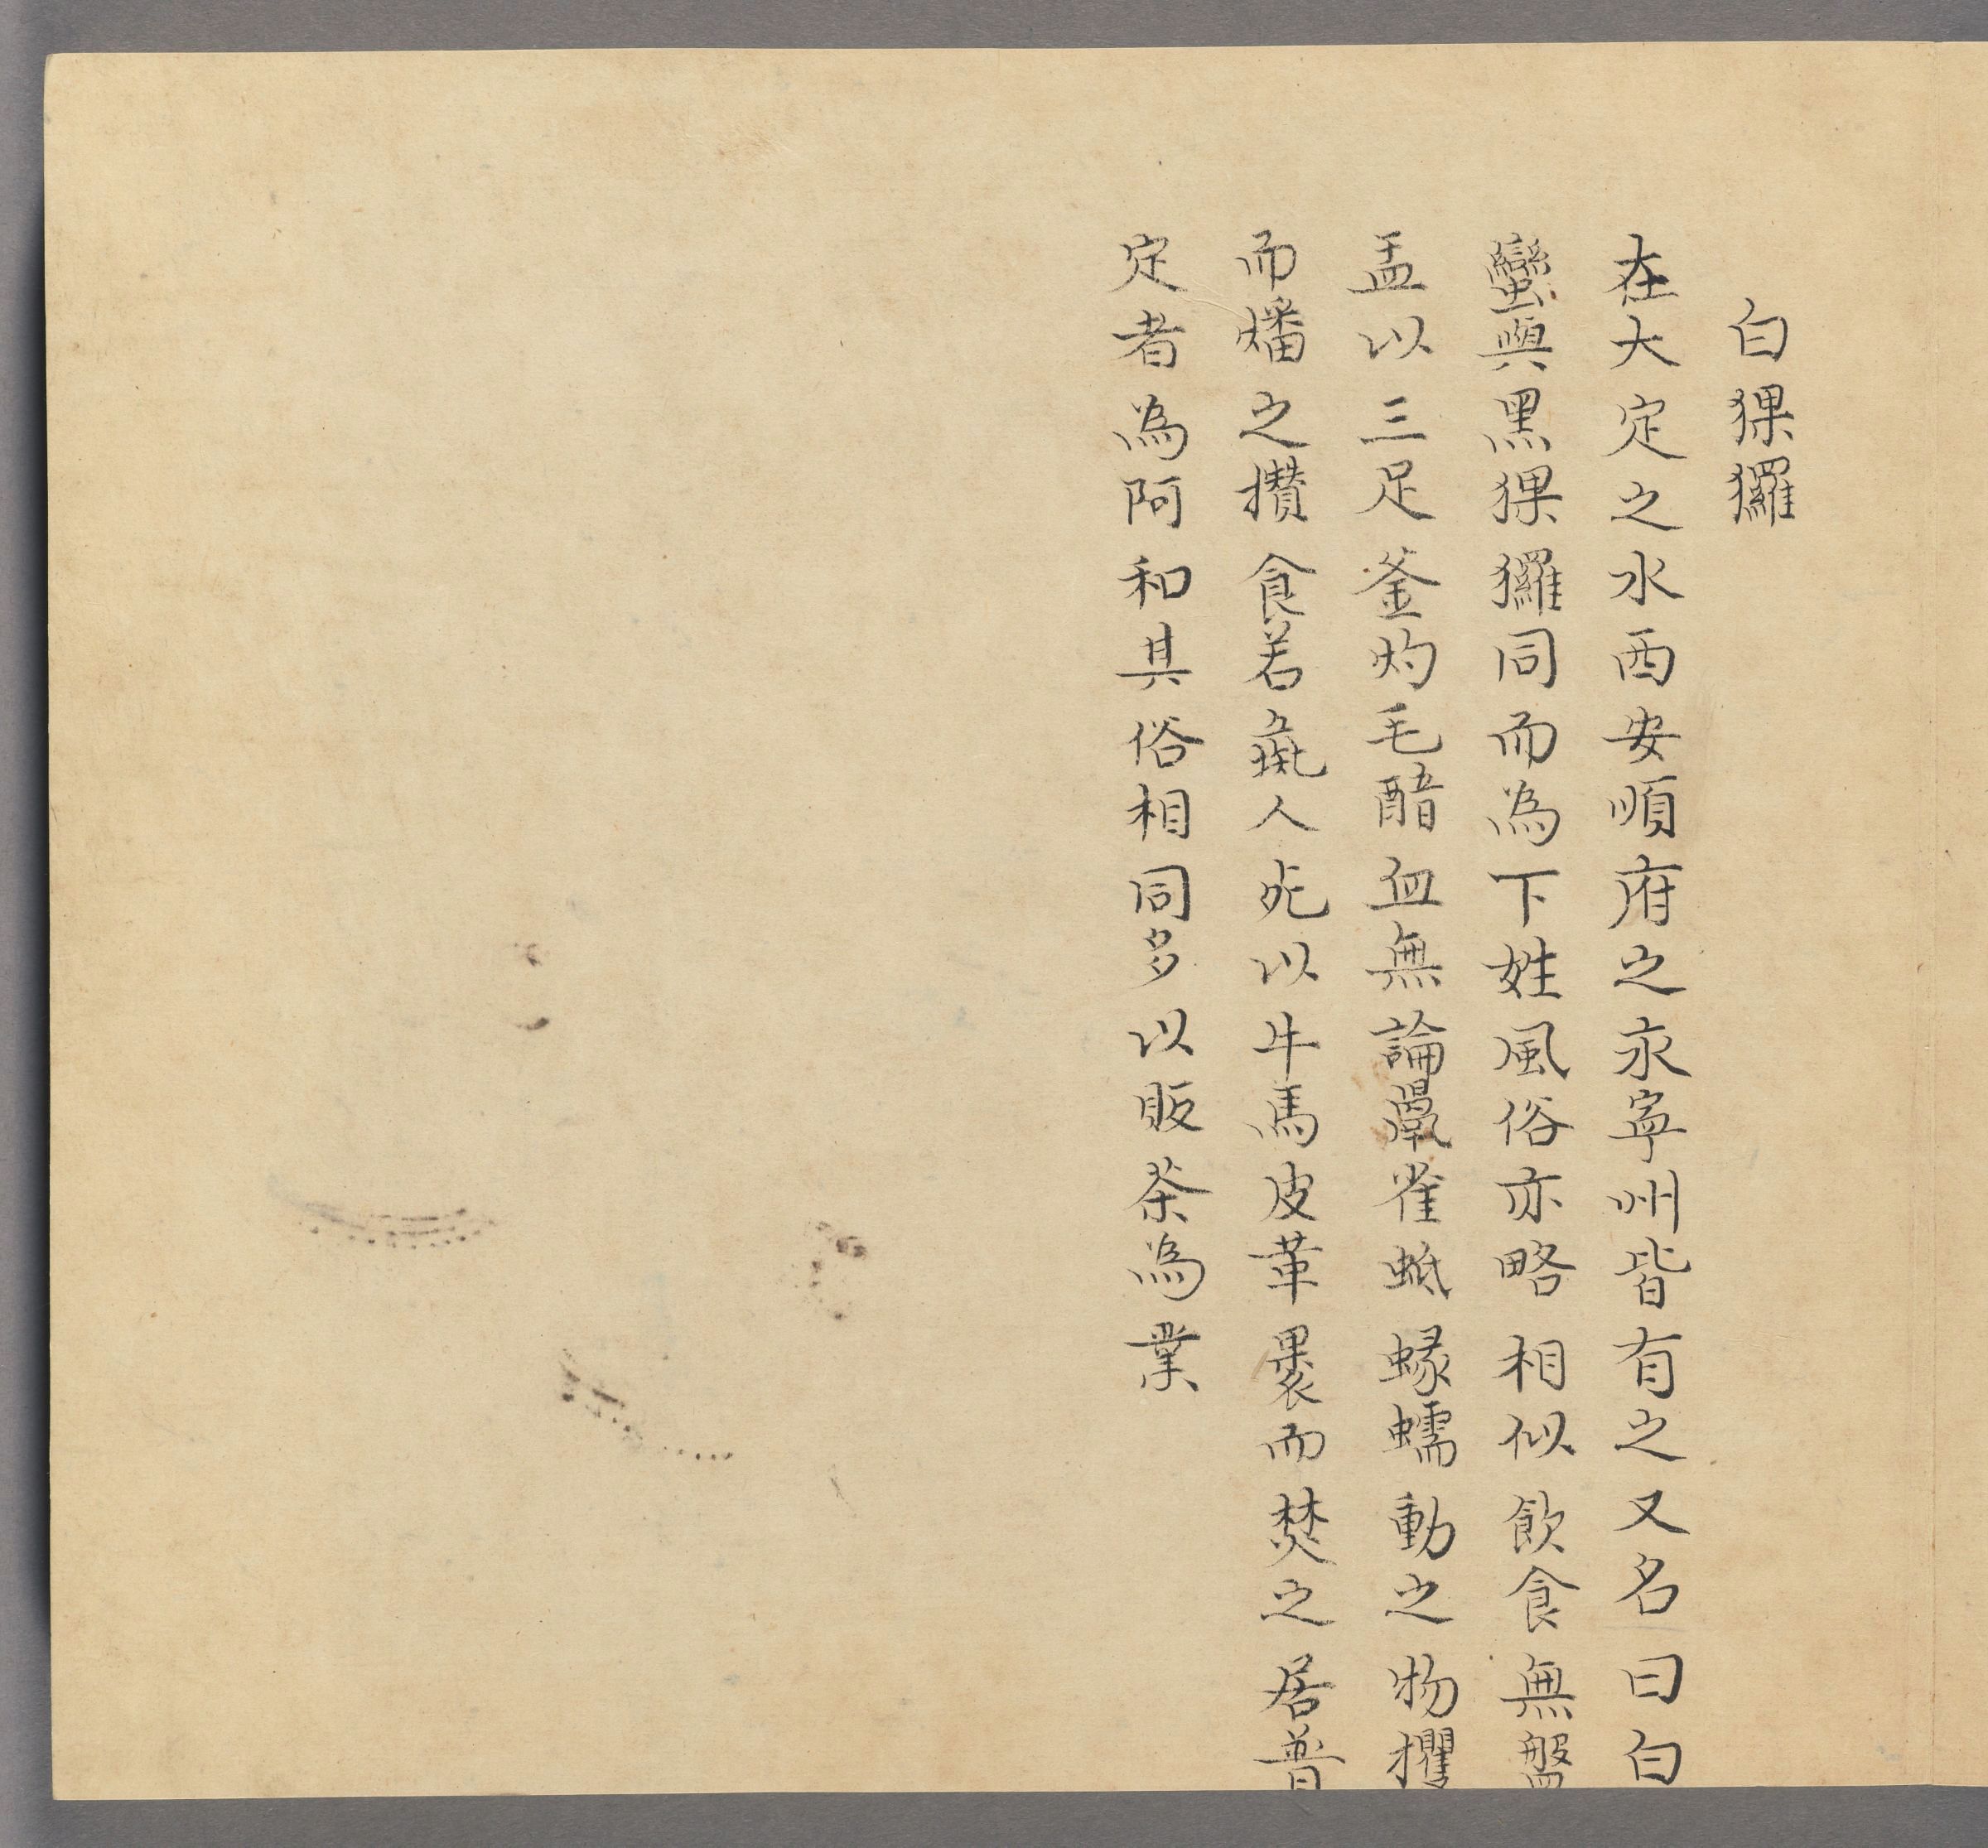 白猓玀
在大定之水西安順府之永寧州皆有之又名曰白
蠻與黑猓玀同而為下姓風俗亦略相似飲食無盤
盂以三足釜灼毛醋血無論鼠雀蚳蝝蠕動之物攫
而燔之攢食若彘人死以牛馬皮革裹而焚之居普
定者為阿和其俗相同多以販茶為業